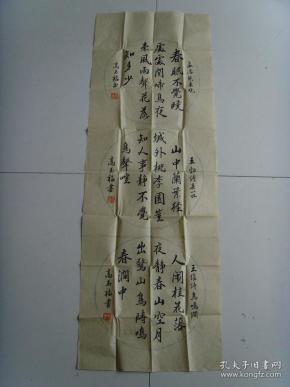 孟浩然春晓
春眠不觉晓
处处闻啼鸟夜
来风雨声花落
知多少
高玉福书
王勃诗春庄
山中兰叶径
城外桃李园笑
知人事静不觉
鸟声喧
高玉福书
王维诗鸟鸣涧
人闲桂花落
夜静春山空月
出惊山鸟时鸣
春涧中
高玉福书
孔夫子旧书网